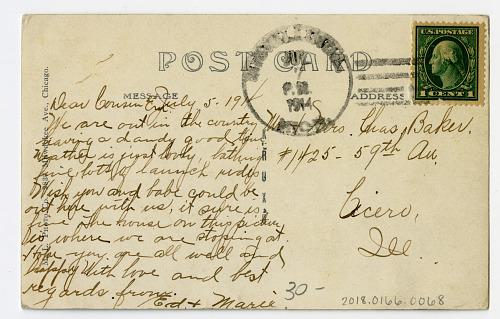 POST CARD
MESSAGE
ADDRESS
U.S. POSTAGE
1 CENT 1
P.M.
1914
Dear Cousin July 5-1914
We are out in the country
having a dandy good time
weather is just lovely, bathing
fine, boat & launch rides
Wish you and babe could be
out here with us, it sure is
fine the house on this picture
is where we are stopping at.
Hope you are all well and
happy with love and best
regards from
Ed & Marie.
Mrs. Chas Baker.
#1425-59th Av.
Cicero,
Ill.
30-
2018.0166.0068
Ave., Chicago.